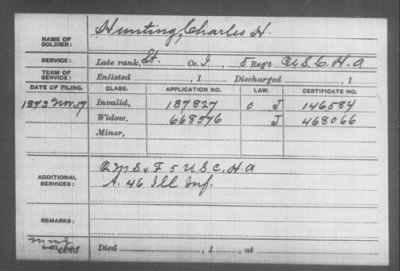 NAME OF SOLDIER: Hunting, Charles H.
SERVICE: Late rank, St. Co. I, 5 Reg't U.S.C.H.A
TERM OF SERVICE: Enlisted , 1 Discharged , 1
DATE OF FILING. CLASS. APPLICATION NO. LAW. CERTIFICATE NO.
1873 Nov. 17 Invalid, 187827 O J 146584
Widow, 668576 J 468066
Minor,
ADDITIONAL SERVICES: Q M S & F 5 U.S.C.H.A
A. 46 Ill Inf.
REMARKS:
Died , 1 , at